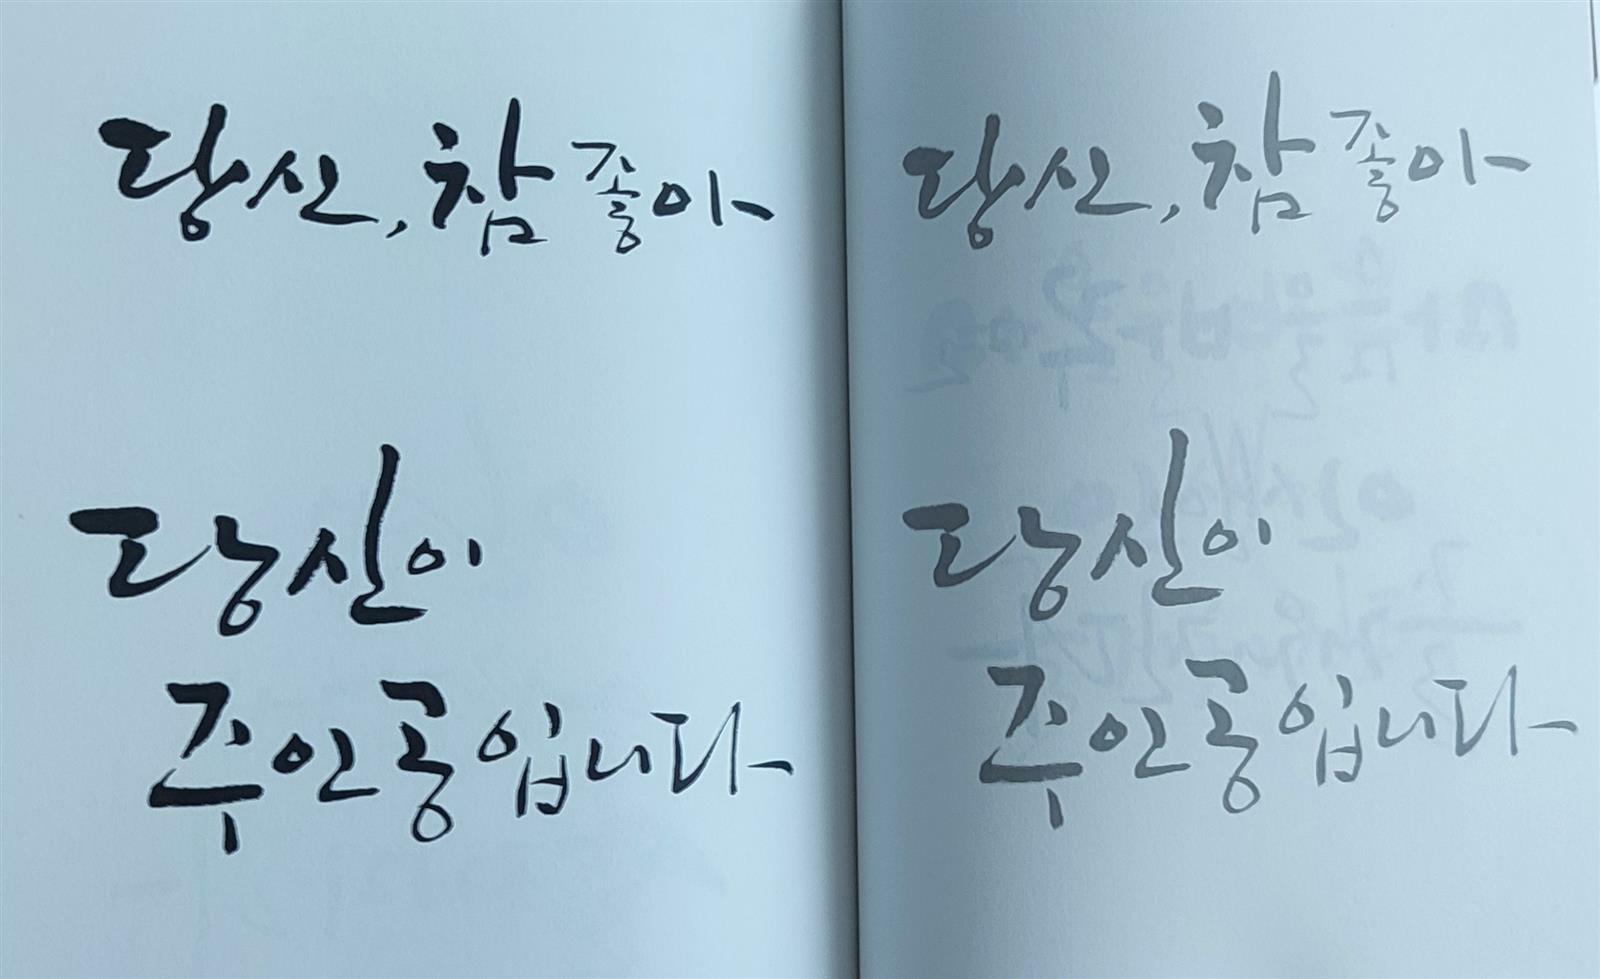 당신, 참 좋아
당신이
주인공입니다
당신, 참 좋아
당신이
주인공입니다